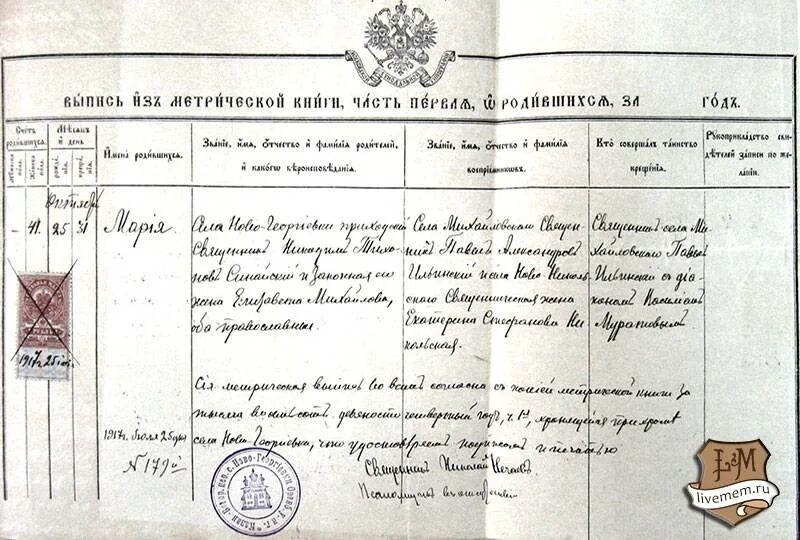 ВЫПИСЬ ИЗЪ МЕТРИЧЕСКОЙ КНИГИ, ЧАСТЬ ПЕРВАЯ, Ѿ РОДИВШИХСЯ, ЗА ГОДЪ.
Счетъ родившихся.
Мужеска пола.
Женска пола.
Мѣсяцъ и день.
рожде-нія.
креще-нія.
Имена родившихся.
Званіе, имя, отчество и фамилія родителей,
и какогѡ вѣроисповѣданія.
Званіе, имя, отчество и фамилія
воспріемникѡвъ.
Кто совершалъ таинство
крещенія.
Рукоприкладство сви-
дѣтелей записи по же-
ланію.
Октября
– 41. 25 31
Марія.
Села Ново-Георгіевки приходскій
Священникъ Никодимъ Тихо-
новъ Синайскій и законная его
жена Елизавета Михайлова,
оба православные.
Села Михайловскаго Священ-
никъ Павелъ Александровъ
Ильинскій и села Ново-Николь-
скаго Священническая жена
Екатерина Стефанова Ни-
кольская.
Священникъ села Ми-
хайловскаго Павелъ
Ильинскій съ діа-
кономъ Косьмою
Муратовымъ
1917г. 25 іюля
Сія метрическая выпись во всемъ согласна съ копіей метрической книги за
тысяча восемьсотъ девяносто четвертый годъ, ч. 1я, хранящейся при храмѣ
села Ново-Георгіевки, что удостовѣряетъ подписомъ и печатью
1917г. Іюля 25 дня
№ 179й
Священникъ Николай
Псаломщикъ
L&M
livemem.ru